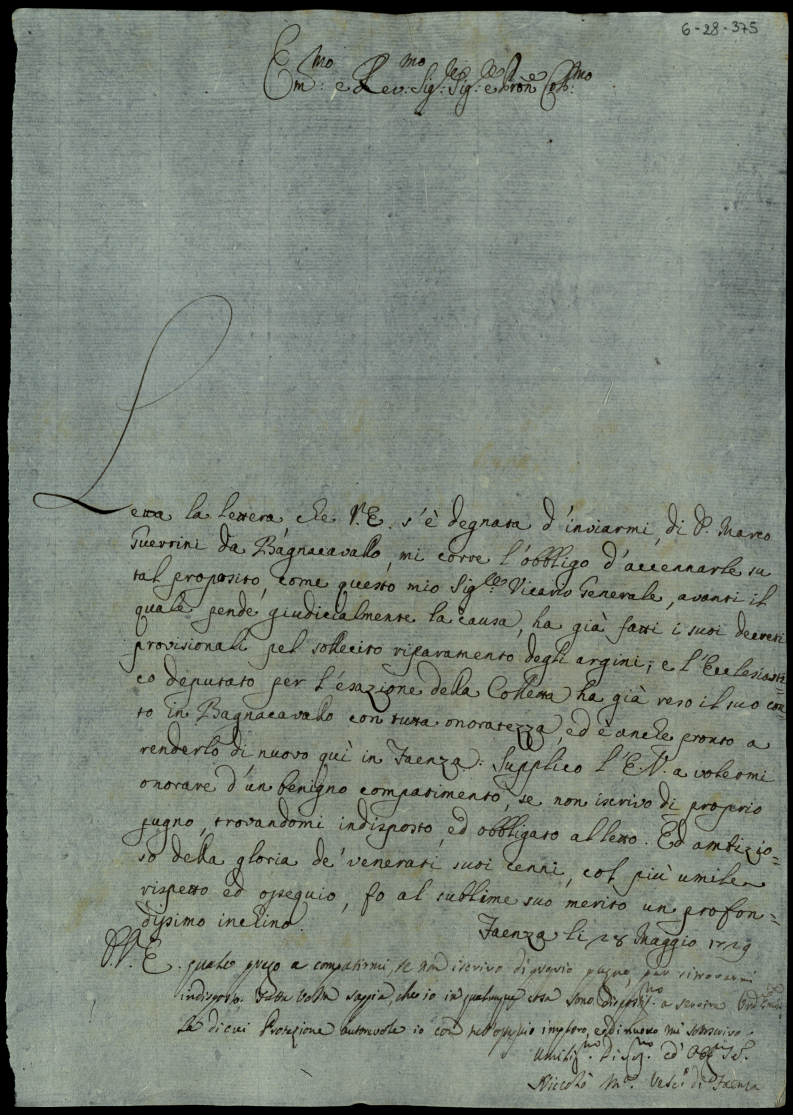 6-28-375
Em:mo e Rev:mo Sig:re Sig:re e Pron Col:mo
Letta la lettera che V.E. s'è degnata d'inviarmi, di D. Marco
Guerrini da Bagnacavallo, mi corre l'obbligo d'accennarle su
tal proposito, come questo mio Sig:re Vicario Generale, avanti il
quale pende giudicialmente la causa, ha già fatti i suoi decreti
provisionali pel sollecito riparamento degli argini; e l'Ecclesiasti=
co deputato per l'esazione della Colletta ha già reso il suo con=
to in Bagnacavallo con tutta onoratezza, ed è anche pronto a
renderlo di nuovo quì in Faenza. Supplico l'E.V. a volermi
onorare d'un benigno compatimento, se non iscrivo di proprio
pugno, trovandomi indisposto, ed obbligato al letto. Ed ambizio=
so della gloria de' venerati suoi cenni, col più umile
rispetto ed ossequio, fo al sublime suo merito un profon=
dissimo inchino.
Faenza li 28 Maggio 1729
V.E. quale prego a compatirmi se non iscrivo di proprio pugno, per ritrovarmi
indisposto. Tutta volta sappia, che io in qualunque cosa sono dispostis:mo a servire
la di cui Protezione autorevole io con tutto ossequio imploro, e di nuovo mi sottoscrivo
Umilis:mo Di:mo ed Obb:mo
Niccolò M:a Vesc:o di Faenza